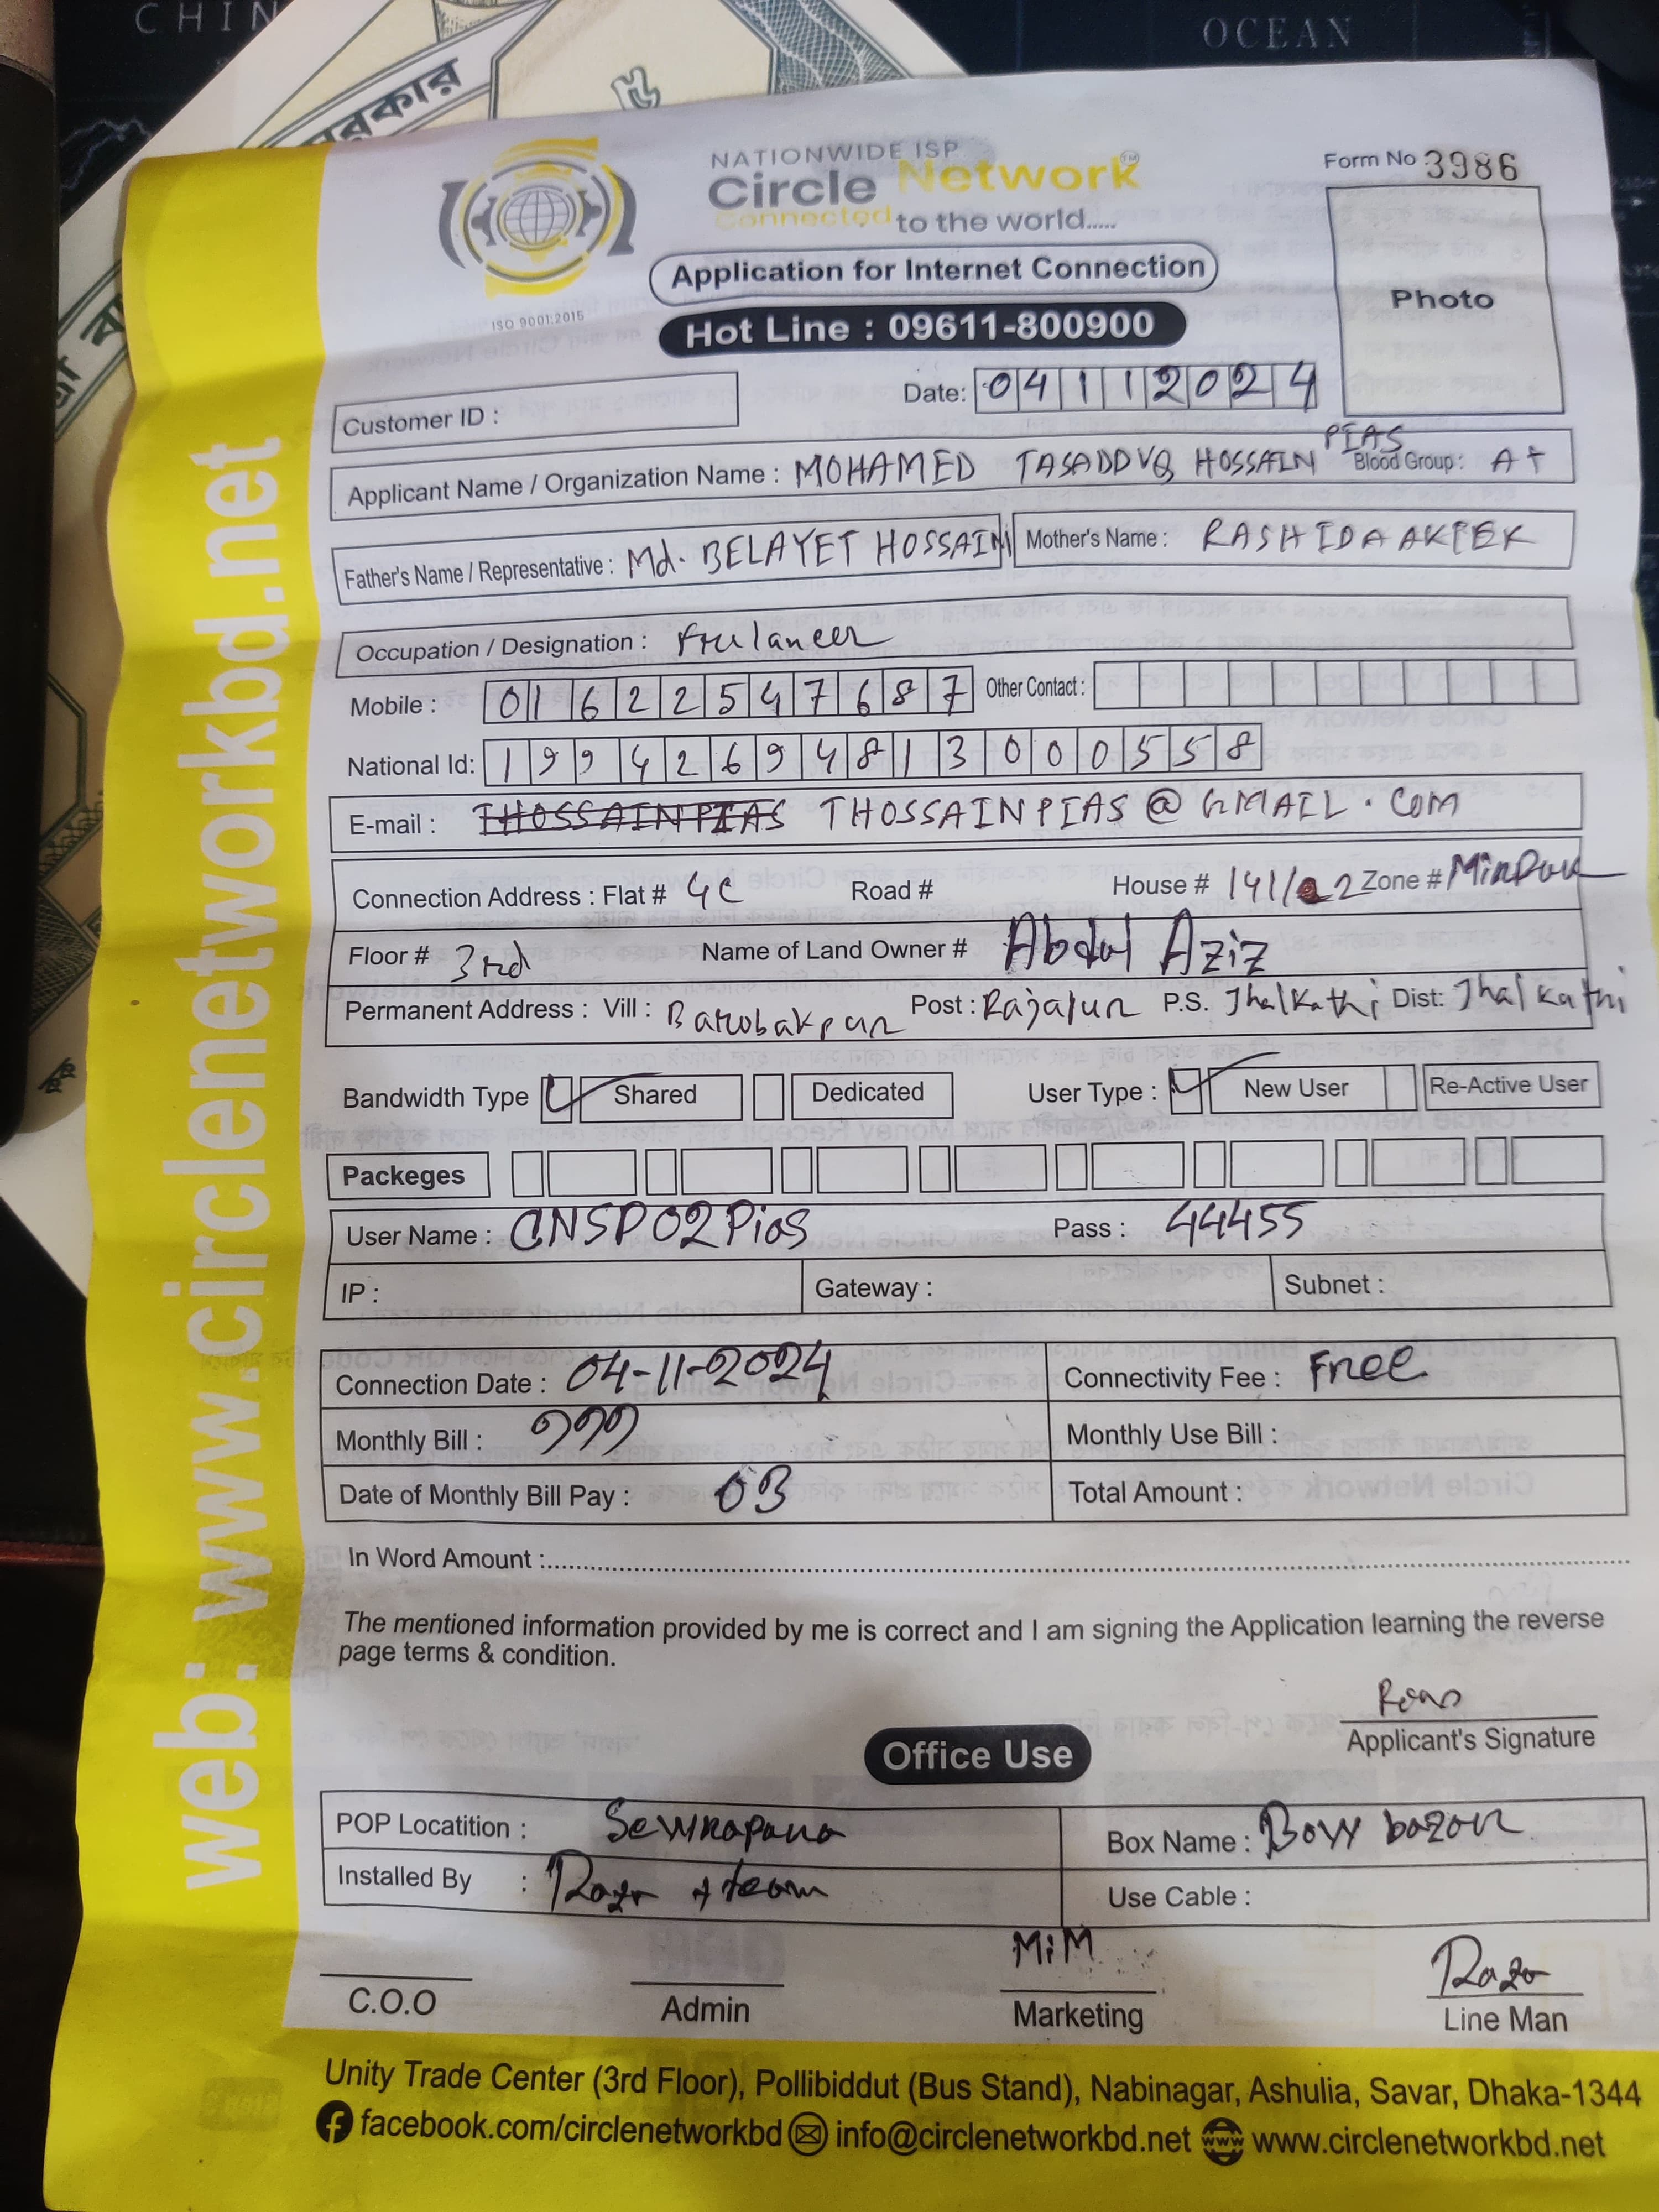 CHIN
OCEAN
রকার
৫
NATIONWIDE ISP
Circle Network™
Connected to the world.....
ISO 9001:2015
Form No 3986
Application for Internet Connection
Photo
Hot Line : 09611-800900
Date: 04112024
Customer ID :
PIAS
Applicant Name / Organization Name : MOHAMED TASADDVQ HOSSAIN Blood Group : A+
Father's Name / Representative : Md. BELAYET HOSSAIN Mother's Name : RASHIDA AKTER
Occupation / Designation : Freelancer
Mobile : 01622547687 Other Contact :
National Id: 19942694813000558
E-mail : THOSSAINPIAS THOSSAINPIAS@GMAIL.COM
Connection Address : Flat # 4C Road # House # 141/2 Zone #
Floor # 3rd Name of Land Owner # Abdul Aziz
Permanent Address : Vill : Barobakpur Post : Rajapur P.S. Jhalkathi Dist: Jhalkathi
Bandwidth Type Shared Dedicated User Type : New User Re-Active User
Packeges
User Name : CNSP02Pias Pass : 44455
IP : Gateway : Subnet :
Connection Date : 04-11-2024 Connectivity Fee : Free
Monthly Bill : Monthly Use Bill :
Date of Monthly Bill Pay : 03 Total Amount :
In Word Amount :
The mentioned information provided by me is correct and I am signing the Application learning the reverse
page terms & condition.
Applicant's Signature
Office Use
POP Locatition : Sewrapara Box Name : Bow bazar
Installed By : team Use Cable :
MiM
C.O.O Admin Marketing Line Man
Unity Trade Center (3rd Floor), Pollibiddut (Bus Stand), Nabinagar, Ashulia, Savar, Dhaka-1344
facebook.com/circlenetworkbd info@circlenetworkbd.net www www.circlenetworkbd.net
web: www.circlenetworkbd.net